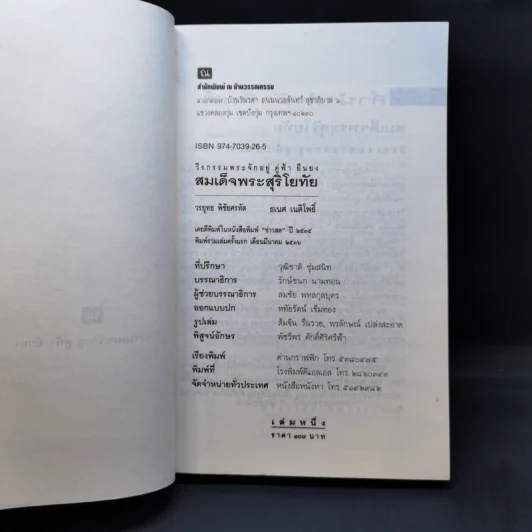 ณ
สำนักพิมพ์ ณ บ้านวรรณกรรม
แขวงคลองกุ่ม เขตบึงกุ่ม กรุงเทพฯ ๑๐๒๓๐
ISBN 974-7039-26-5
วีรกรรมพระจักอยู่ คู่ฟ้า ยืนยง
สมเด็จพระสุริโยทัย
วรยุทธ พิชัยศรทัต ธเนศ เนติโพธิ์
เคยตีพิมพ์ในหนังสือพิมพ์ "ข่าวสด" ปี ๒๕๓๕
พิมพ์รวมเล่มครั้งแรก เดือนมีนาคม ๒๕๓๖
ที่ปรึกษา วุฒิชาติ ชุ่มสนิท
บรรณาธิการ รักษ์ชนก นามทอน
ผู้ช่วยบรรณาธิการ สมชัย พหลกุลบุตร
ออกแบบปก หทัยรัตน์ เข็มทอง
รูปเล่ม สัมจีน รื่นรวย, พรลักษณ์ เปล่งสะอาด
พิสูจน์อักษร พัชรีพร ศักดิ์ศิริศรีฟ้า
เรียงพิมพ์ ด่านกราฟฟิก โทร ๕๓๘๐๔๘๕
พิมพ์ที่ โรงพิมพ์ดีแอลเอส โทร ๒๘๒๐๓๔๓
จัดจำหน่ายทั่วประเทศ หนังสือหนังหา โทร ๕๑๙๒๙๘๒
เล่มหนึ่ง
ราคา ๑๓๐ บาท